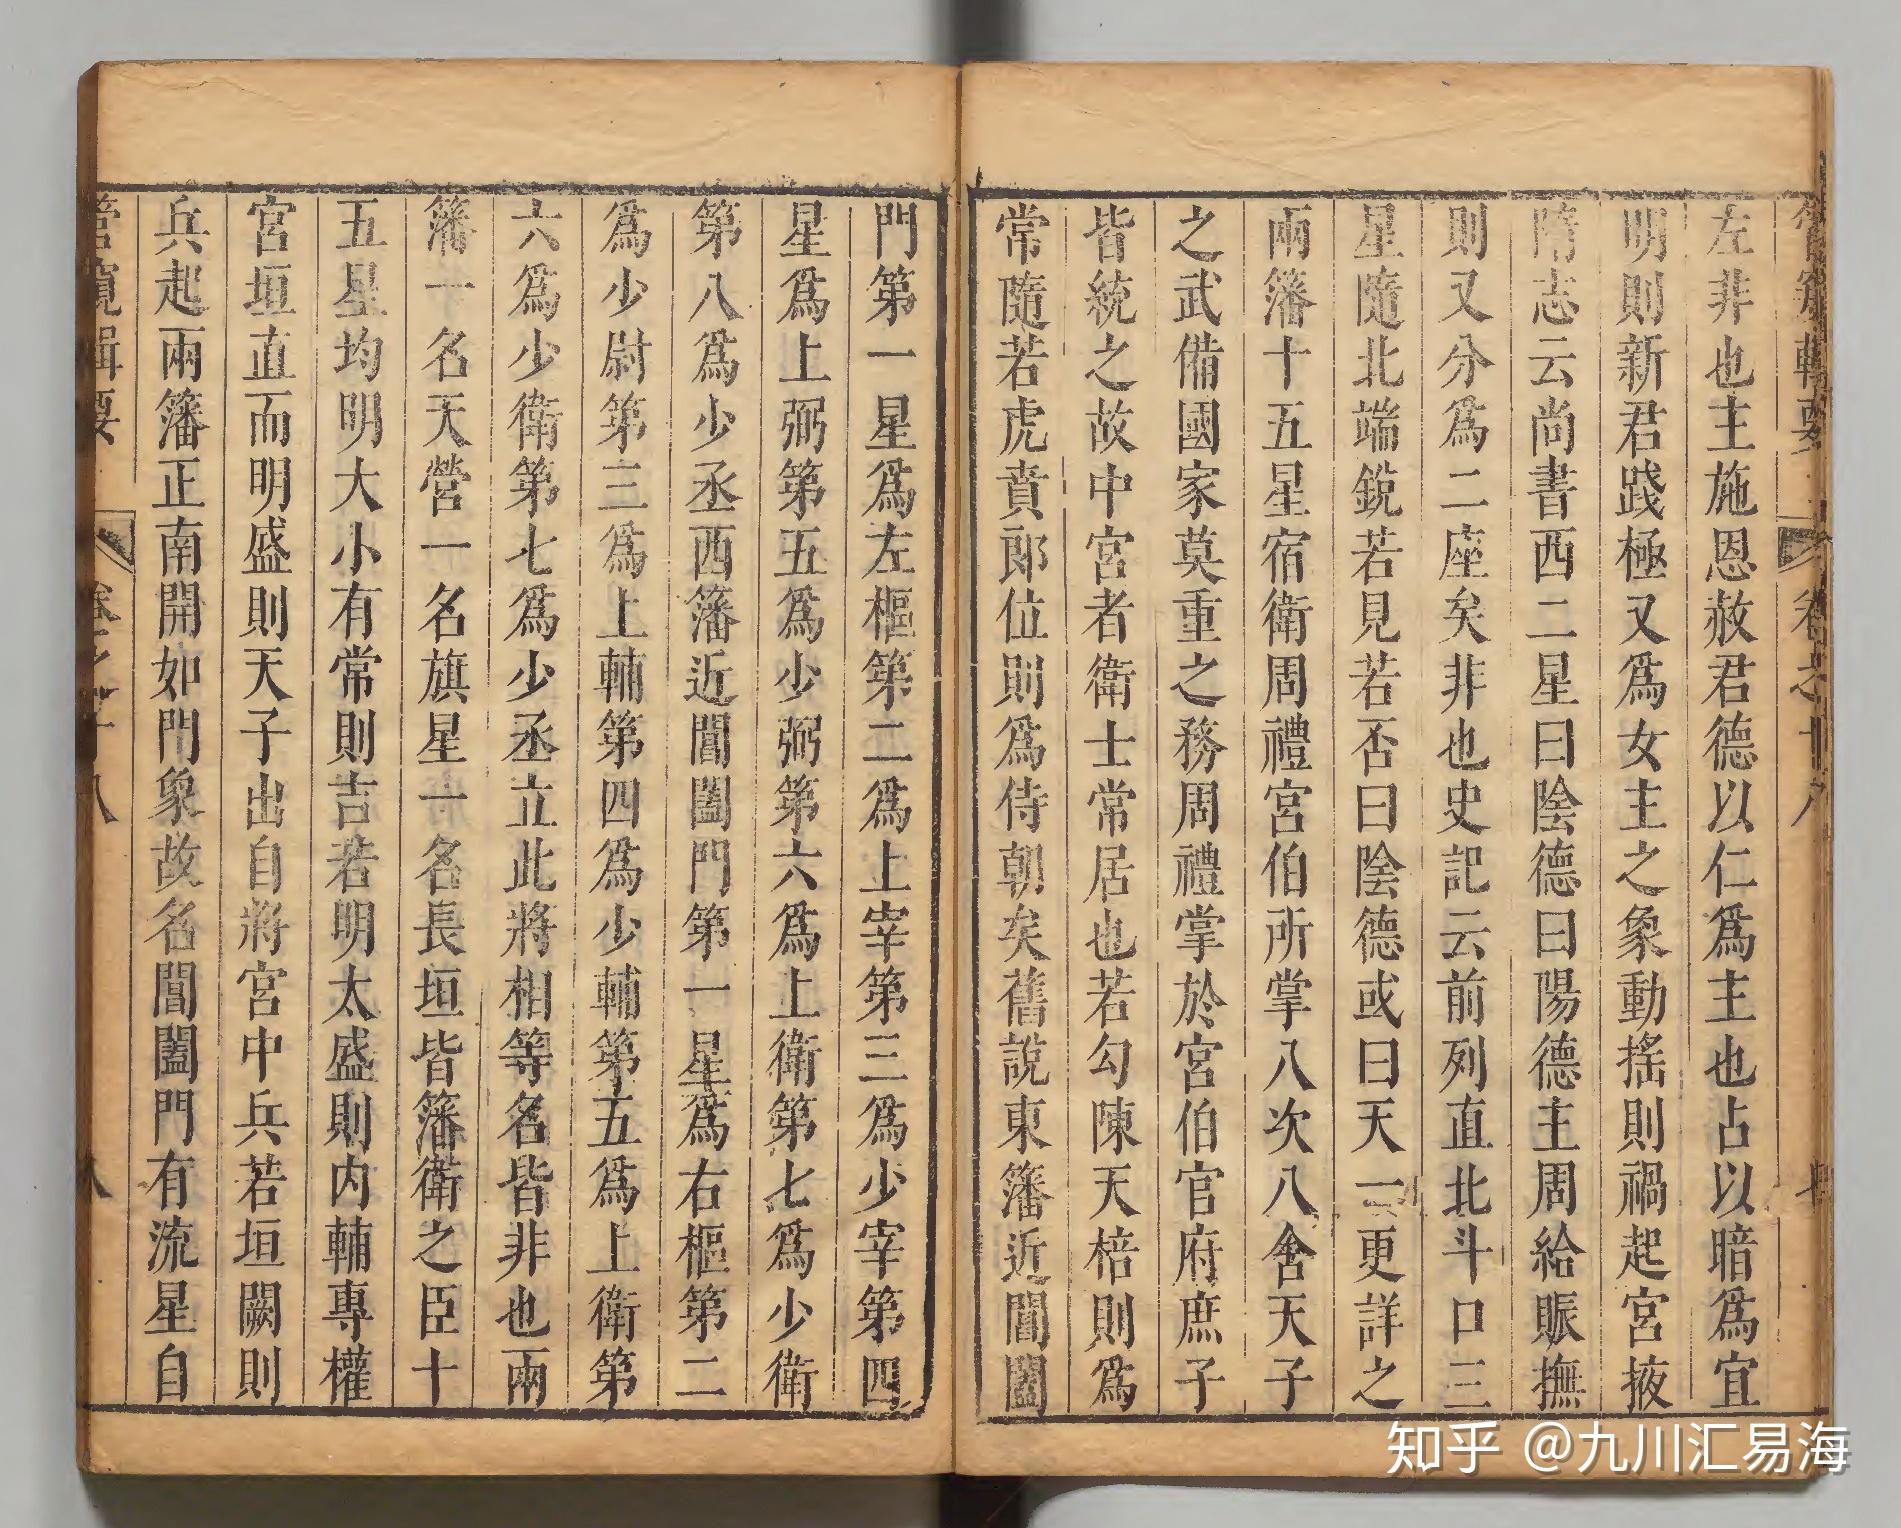 管窺輯要 卷之十八 七
左非也主施恩赦君德以仁爲主也占以暗爲宜
明則新君踐極又爲女主之象動搖則禍起宮掖
隋志云尚書西二星曰陰德曰陽德主周給賑撫
則又分爲二座矣非也史記云前列直北斗口三
星隨北端銳若見若否曰陰德或曰天一更詳之
兩籓十五星宿衛周禮宮伯所掌八次八舍天子
之武備國家莫重之務周禮掌於宮伯官府庶子
皆統之故中宮者衛士常居也若勾陳天棓則爲
常隨若虎賁郎位則爲侍朝矣舊說東籓近閶闔
門第一星爲左樞第二爲上宰第三爲少宰第四
星爲上弼第五爲少弼第六爲上衛第七爲少衛
第八爲少丞西籓近閶闔門第一星爲右樞第二
爲少尉第三爲上輔第四爲少輔第五爲上衛第
六爲少衛第七爲少丞立此將相等名皆非也兩
籓一名天營一名旗星一名長垣皆籓衛之臣十
五星均明大小有常則吉若明太盛則內輔專權
宮垣直而明盛則天子出自將宮中兵若垣闕則
兵起兩籓正南開如門象故名閶闔門有流星自
管窺輯要 卷之十八 八
知乎 @九川汇易海